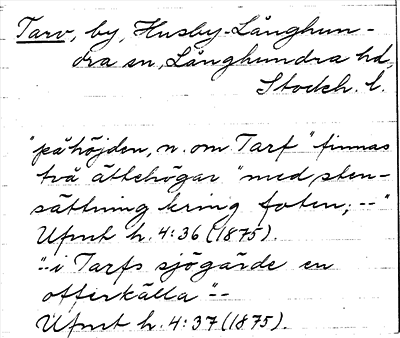 Tarv, by, Husby-Långhun-
dra sn, Långhundra hd,
Stockh. l.
"på höjden, n. om Tarf" finnas
två ättehögar "med sten-
sättning kring foten; --"
Ufmt h. 4:36 (1875).
"-- i Tarfs sjögärde en
offerkälla" --
Ufmt h. 4:37 (1875).